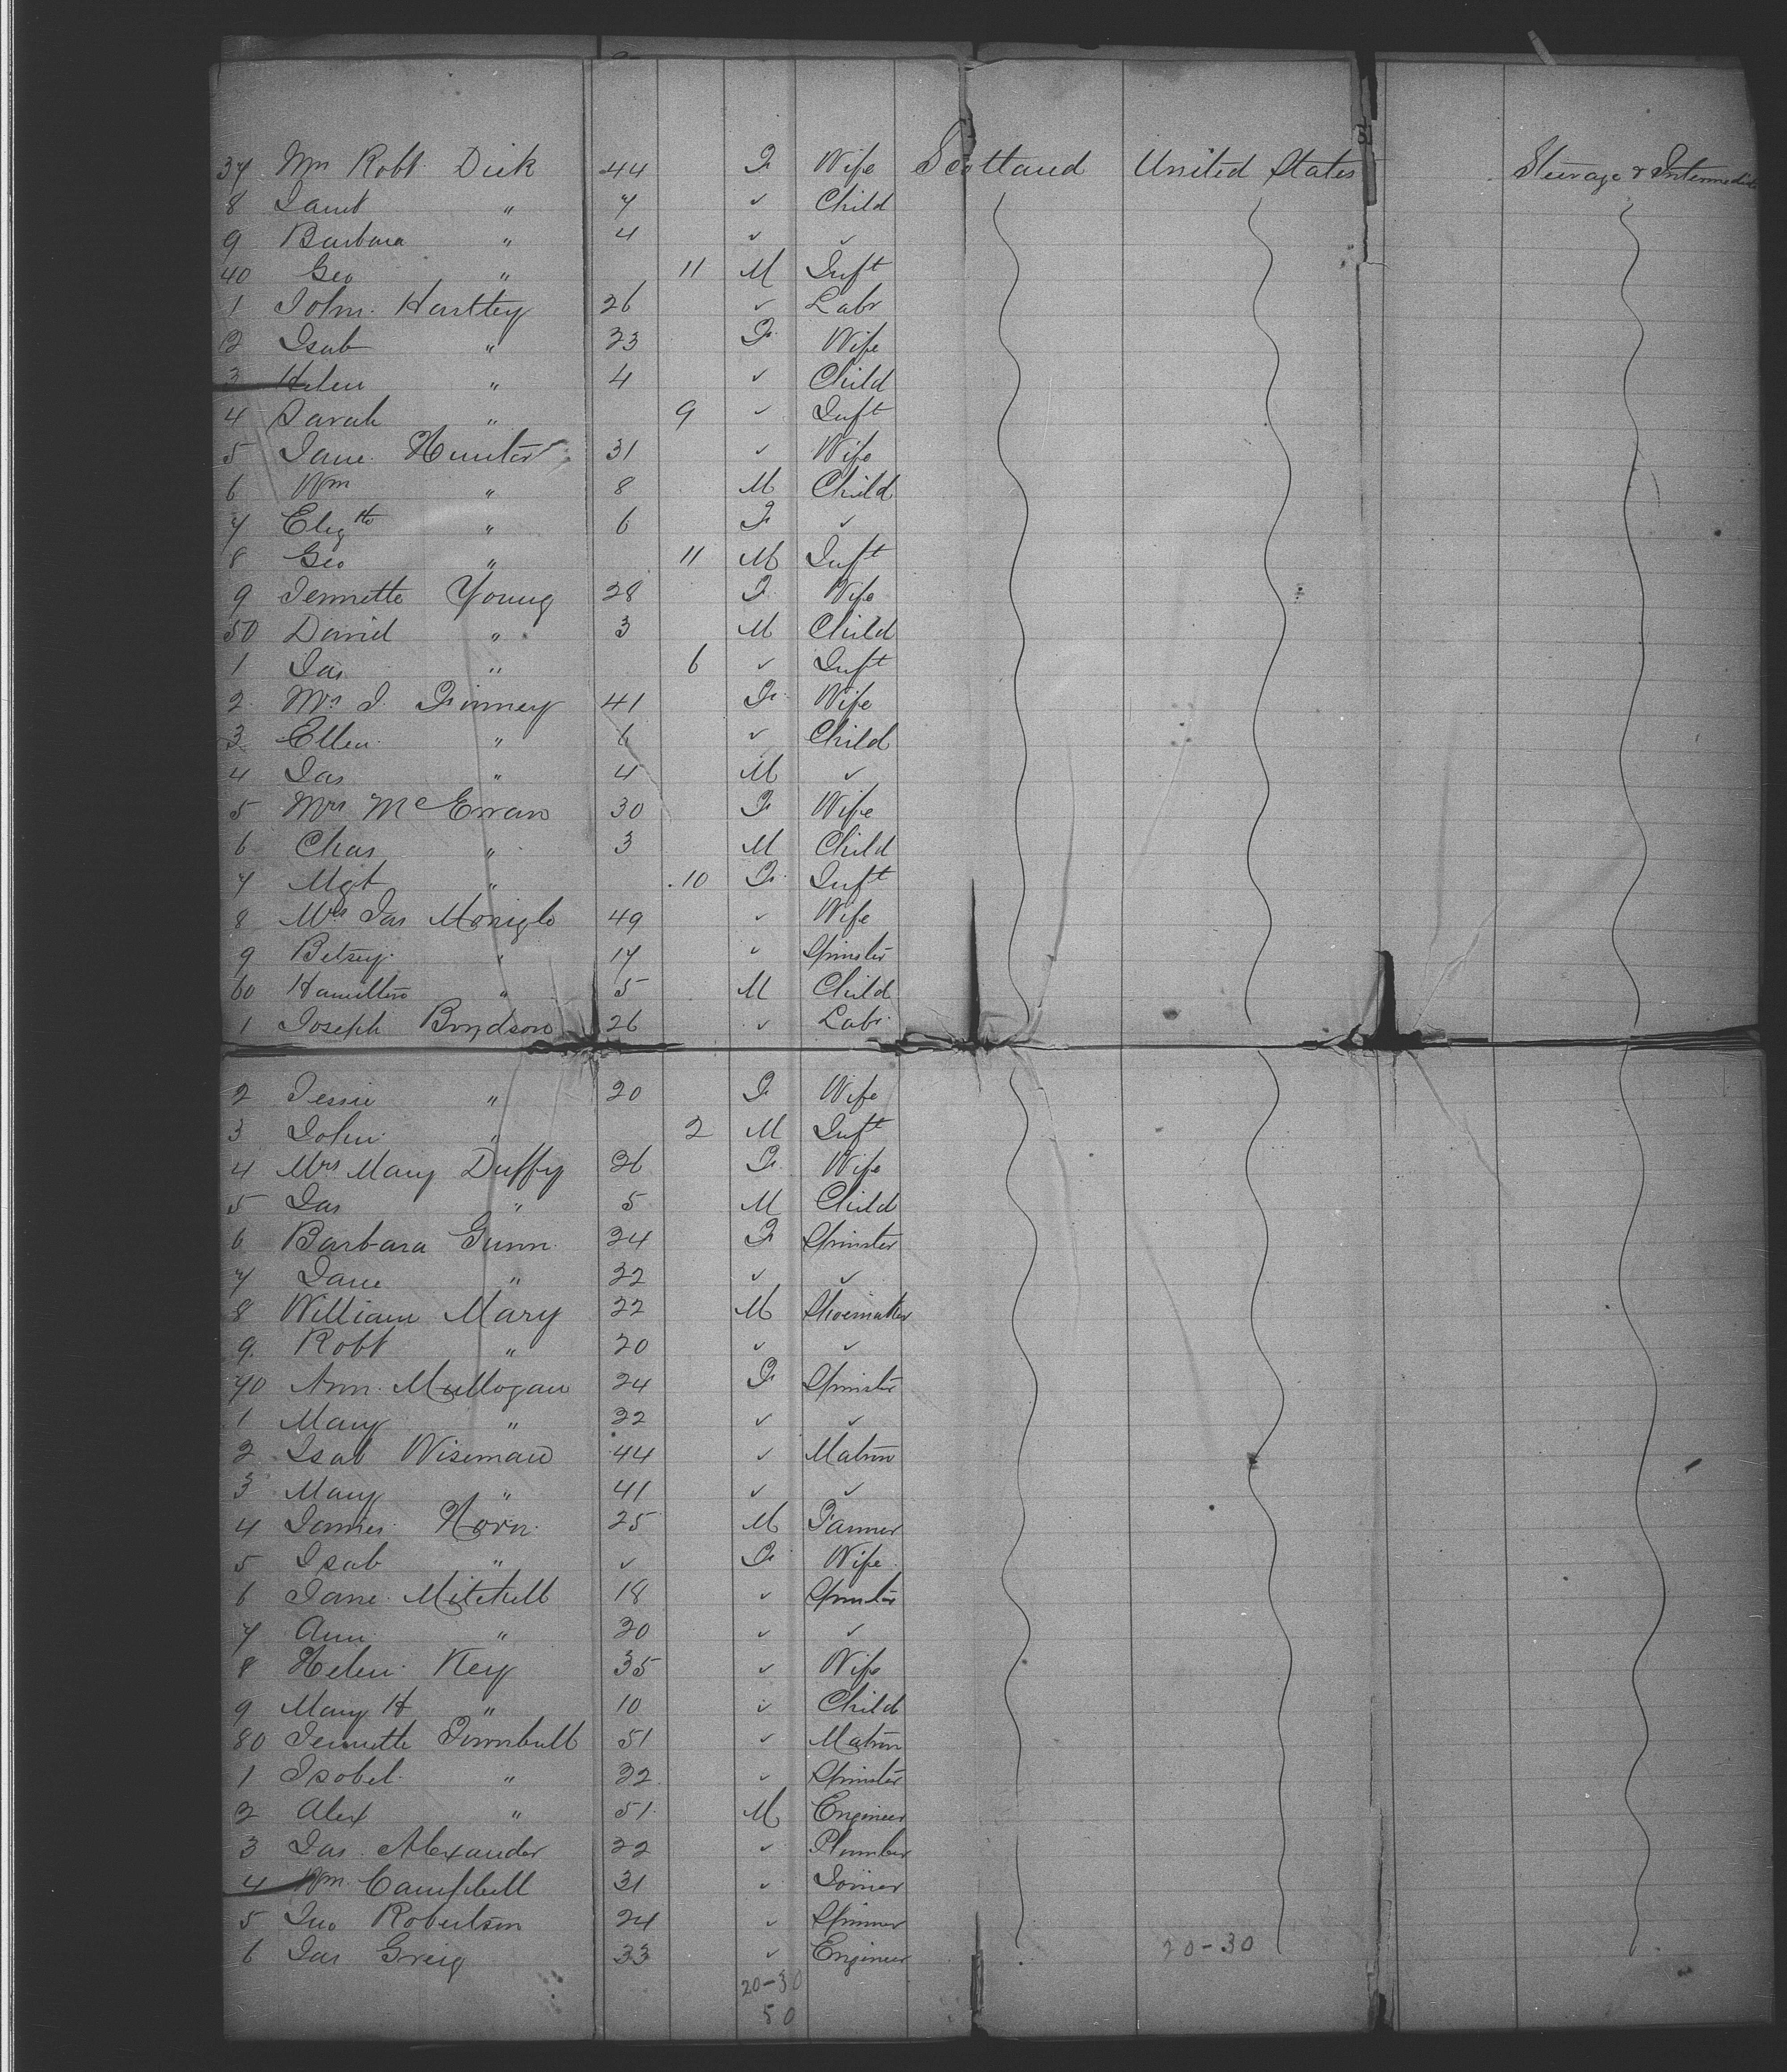 37 Mrs Robt. Dick 44 F Wife Scotland United States Steerage & Intermediate
8 Janet " 7 ✓ Child
9 Barbara " 4 ✓ ✓
40 Geo " 11 M Inft
1 John Hartley 26 ✓ Labr
2 Isab " 23 F Wife
3 Helen " 4 ✓ Child
4 Sarah " 9 ✓ Inft
5 Jane Hunter 31 ✓ Wife
6 Wm " 8 M Child
7 Elizth " 6 F ✓
8 Geo " 11 M Inft
9 Jennette Young 28 F Wife
50 David " 3 M Child
1 Jas " 6 ✓ Inft
2 Mrs J. Finney 41 F Wife
3 Ellen " 6 ✓ Child
4 Jas " 4 M ✓
5 Mrs McEwan 30 F Wife
6 Chas " 3 M Child
7 Mgt " 10 F Inft
8 Mrs Jas Monigle 49 ✓ Wife
9 Betsey " 17 ✓ Spinster
60 Hamilton " 5 M Child
1 Joseph Boydson 26 ✓ Labr
2 Jessie " 20 F Wife
3 John " 2 M Inft
4 Mrs Mary Duffy 26 F Wife
5 Jas " 5 M Child
6 Barbara Gunn 24 F Spinster
7 Jane " 22 ✓ ✓
8 William Mary 22 M Shoemaker
9 Robt " 20 ✓ ✓
70 Ann Mullogan 24 F Spinster
1 Mary " 22 ✓ ✓
2 Isab Wiseman 44 ✓ Matron
3 Mary " 41 ✓ ✓
4 James Horn 25 M Farmer
5 Isab " ✓ F Wife
6 Jane Mitchell 18 ✓ Spinster
7 Ann " 20 ✓ ✓
8 Helen Key 35 ✓ Wife
9 Mary H " 10 ✓ Child
80 Jennette Turnbull 51 ✓ Matron
1 Isobel " 22 ✓ Spinster
2 Alex " 51 M Engineer
3 Jas. Alexander 22 ✓ Plumber
4 Wm Campbell 31 ✓ Joiner
5 Jno Robertson 24 ✓ Spinner
6 Jas Greig 33 ✓ Engineer 20-30
20-30
50